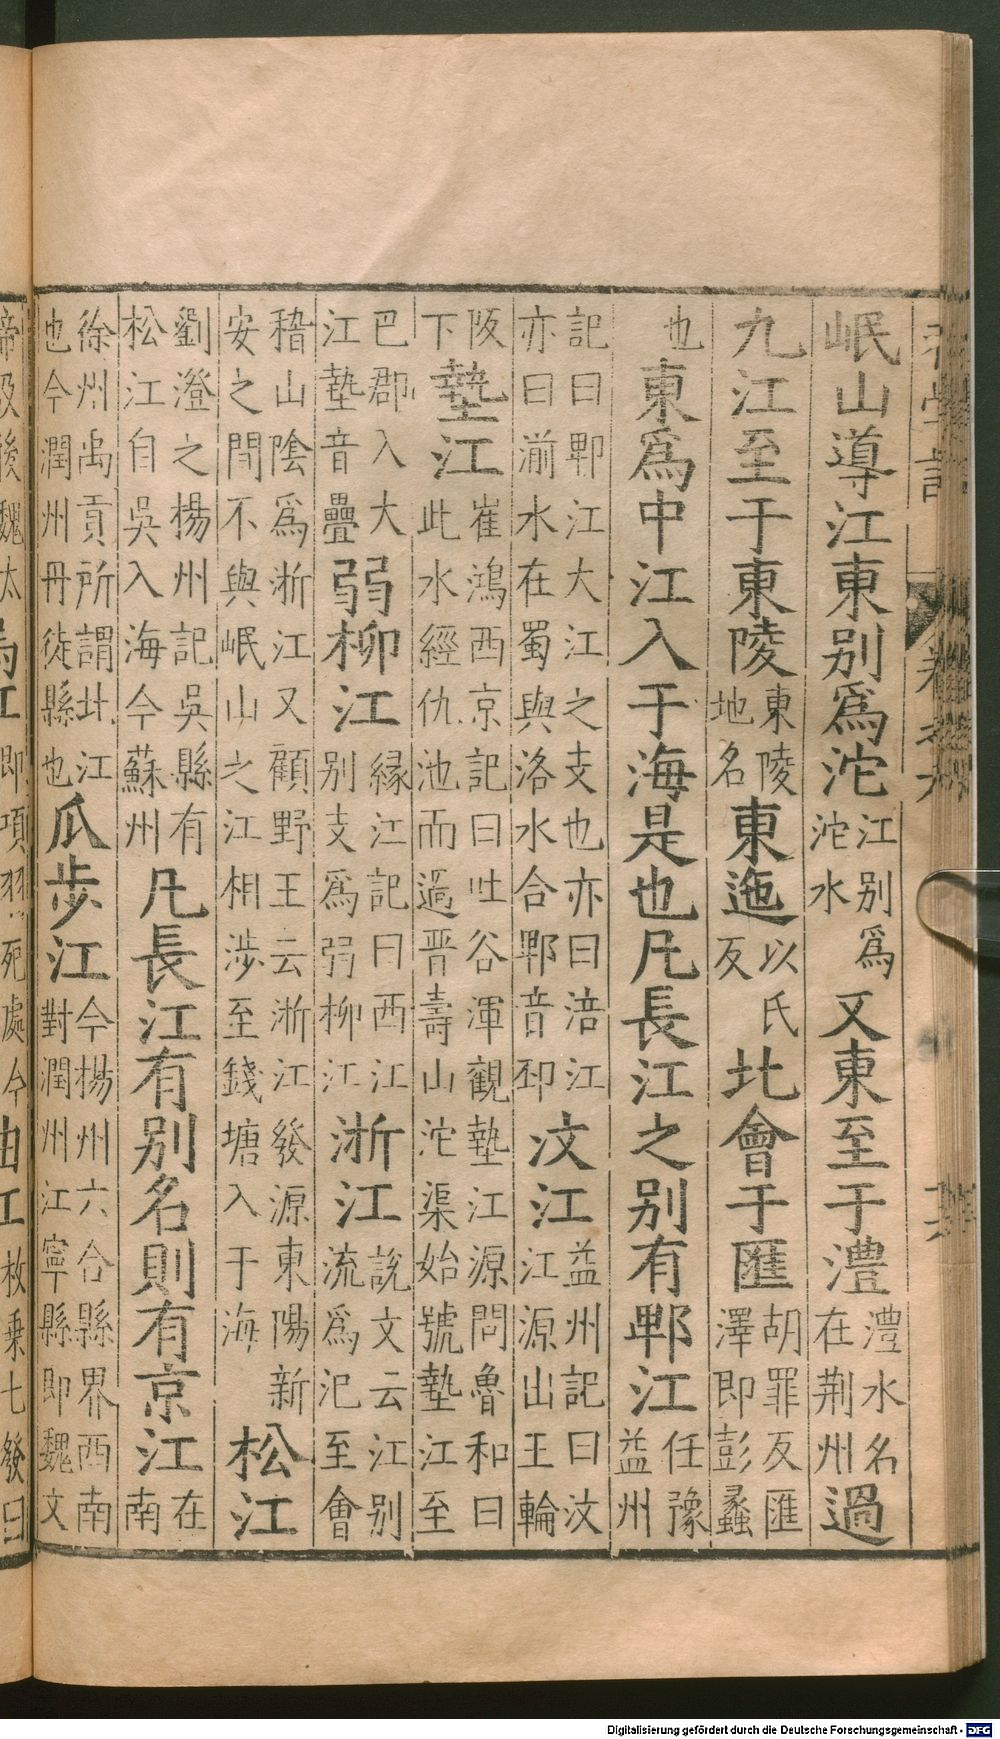 學記 卷 六
岷山導江東别爲沱江别爲沱水又東至于澧澧水名在荆州過
九江至于東陵東陵地名東迤以氏反北會于匯胡罪反匯澤即彭蠡
也東爲中江入于海是也凡長江之别有郫江任豫益州
記曰郫江大江之支也亦曰涪江亦曰湔水在蜀與洛水合郫音邳汶江益州記曰汶江源出王輪
阪下墊江崔鴻西京記曰吐谷渾觀墊江源問魯和曰此水經仇池而過晋壽山沱渠始號墊江至
巴郡入大江墊音疊弱柳江縁江記曰西江别支爲弱柳江浙江說文云江别流爲汜至會
稽山陰爲浙江又顧野王云浙江發源東陽新安之間不與岷山之江相涉至錢塘入于海松江
劉澄之楊州記吳縣有松江自吳入海今蘇州凡長江有别名則有京江在南
徐州禹貢所謂北江也今潤州丹徒縣也瓜步江今楊州六合縣界西南對潤州江寧縣即魏文
帝及後魏太 江即項羽死處今曲江枚乗七發曰
Digitalisierung gefördert durch die Deutsche Forschungsgemeinschaft - DFG